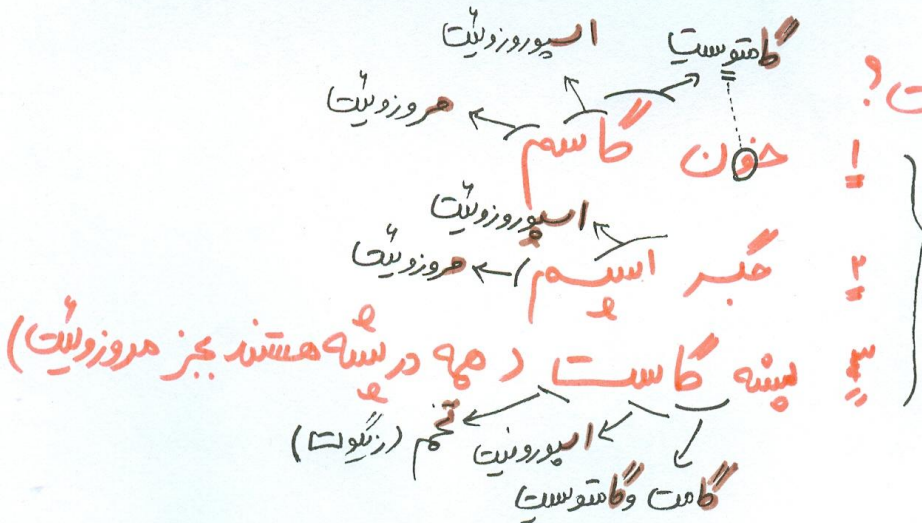 اسپوروزوئیت گامتوسیت
مروزوئیت
ت؟
۱ خون گاسم
اسپوروزوئیت
مروزوئیت
۲ جگر اسم
۳ پشه گاست (همه در پشه هستند بجز مروزوئیت)
تخم (زیگوت)
اسپوروئیت
گامت و گامتوسیت